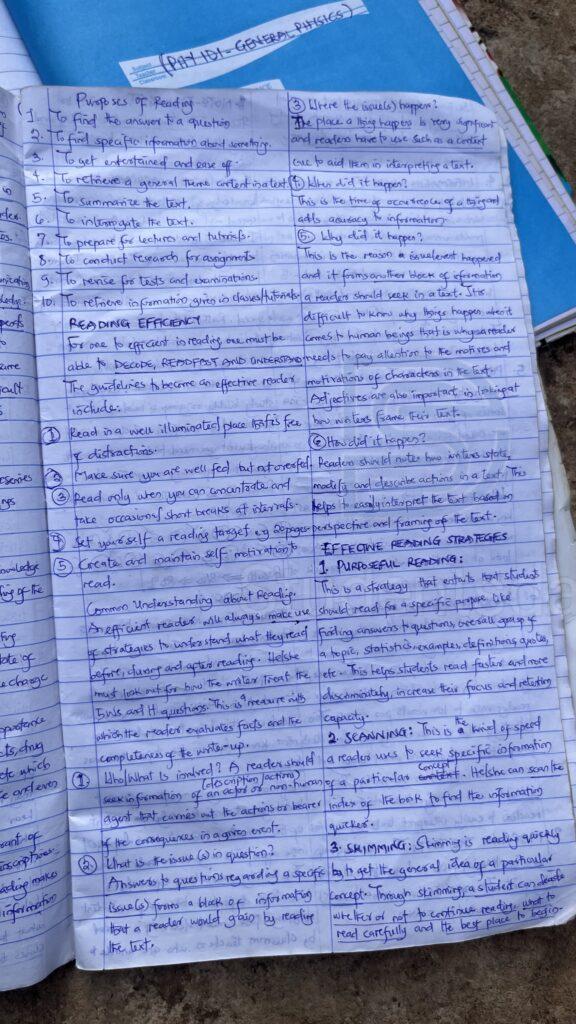 (PHY 101 - GENERAL PHYSICS)
Subject
Teacher
Purposes of Reading
1. To find the answer to a question
2. To find specific information about something.
3. To get entertained and ease off.
4. To retrieve a general theme content in a text
5. To summarize the text.
6. To interrogate the text.
7. To prepare for lectures and tutorials.
8. To conduct research for assignments
9. To revise for tests and examinations.
10. To retrieve information given in classes/tutorials
READING EFFICIENCY
For one to efficient in reading one must be
able to DECODE, READ FAST AND UNDERSTAND
The guidelines to become an effective reader
include:
1 Read in a well illuminated place that is free
of distractions.
2 Make sure you are well fed but not overfed.
3 Read only when you can concentrate and
take occasional short breaks at intervals.
4 Set yourself a reading target e.g 20 pages
5 Create and maintain self-motivation to
read.
Common Understanding about Reading.
An efficient reader will always make use
of strategies to understand what they read
before, during and after reading. He/she
must look out for how the writer treat the
5Ws and H questions. This is a measure with
which the reader evaluates facts and the
completeness of the write-up.
1 Who/What is involved? A readers should
(description/action)
seek information of an actor or non-human
agent that carries out the actions or bearer
of the consequences in a given event.
2 What is the issue(s) in question?
Answers to questions regarding a specific
issue(s) forms a block of information
that a reader would gain by reading
the text.
3 Where the issue(s) happen?
The place a thing happens is very significant
and readers have to use such as a context
cue to aid them in interpreting a text.
4 When did it happen?
This is the time of occurrence of a thing and
adds accuracy to information.
5 Why did it happen?
This is the reason a issue/event happened
and it forms another block of information
a readers should seek in a text. It is
difficult to know why things happen when it
comes to human beings that is why a reader
needs to pay attention to the motives and
motivations of characters in the text.
Adjectives are also important in looking at
how writers frame their text.
6 How did it happen?
Readers should notes how writers state,
modify and describe actions in a text. This
helps to easily interpret the text based on
perspective and framing of the text.
EFFECTIVE READING STRATEGIES
1. PURPOSEFUL READING:
This is a strategy that entails that students
should read for a specific purpose like
finding answers to questions, overall grasp of
a topic, statistics, examples, definitions, quotes,
etc. This helps students read faster and more
discriminately, increase their focus and retention
capacity.
2. SCANNING: This is the kind of speed
a reader uses to seek specific information
of a particular concept. He/she can scan the
index of the book to find the information
quicker.
3. SKIMMING: Skimming is reading quickly
to get the general idea of a particular
concept. Through skimming, a student can decide
whether or not to continue reading, what to
read carefully and the best place to begin.